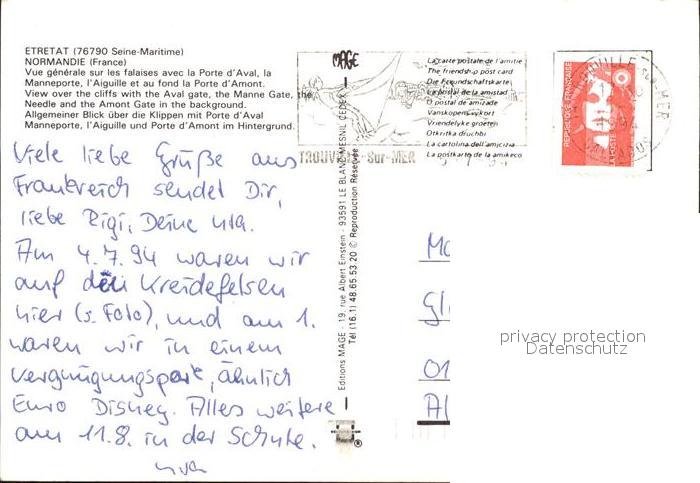 ETRETAT (76790 Seine-Maritime)
NORMANDIE (France)
Vue générale sur les falaises avec la Porte d'Aval, la
Manneporte, l'Aiguille et au fond la Porte d'Amont.
View over the cliffs with the Aval gate, the Manne Gate, the
Needle and the Amont Gate in the background.
Allgemeiner Blick über die Klippen mit Porte d'Aval
Manneporte, l'Aiguille und Porte d'Amont im Hintergrund.
Viele liebe Grüße aus
Frankreich sendet Dir,
liebe Rigi, Deine
Am 4.7.94 waren wir
auf den Kreidefelsen
hier (s. Foto), und am 1.
waren wir in einem
vergnügungspark, ähnlich
Euro Disney. Alles weitere
am 11.8. in der Schule.
MAGE
Editions MAGE - 19, rue Albert Einstein - 93591 LE BLANC-MESNIL CEDEX
Tél (16.1) 48 65 53 20 © Reproduction Réservée
La carte postale de l'amitie
The friendship post card
Die Freundschaftskarte
La postal de la amistad
O postal de amizade
Vanskopensvykort
Vriendelyke groeten
Otkritka druchbi
La cartolina dell'amicizia
La postkarto de la amikeco
TROUVILLE-Sur-MER
REPUBLIQUE FRANÇAISE
Gl
01
Al
privacy protection
Datenschutz